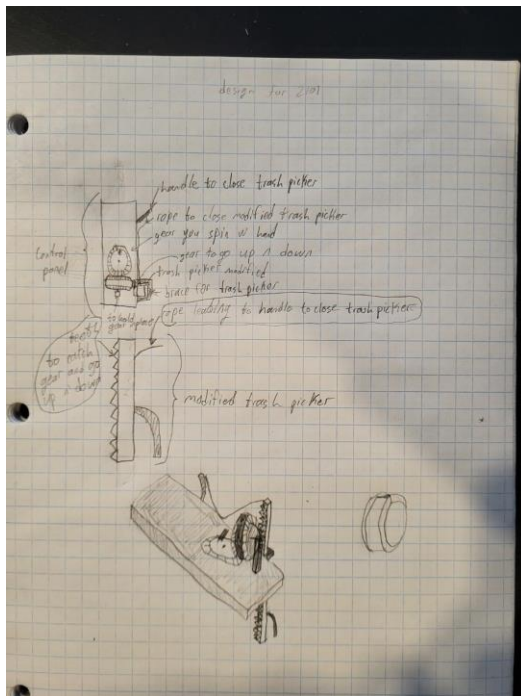 design for
handle to close trash picker
rope to close modified trash picker
gear you spin w hand
gear to go up n down
control
panel
trash picker modified
brace for trash picker
rope leading to handle to close trash picker
teeth
to catch
gear and go
up n down
modified trash picker